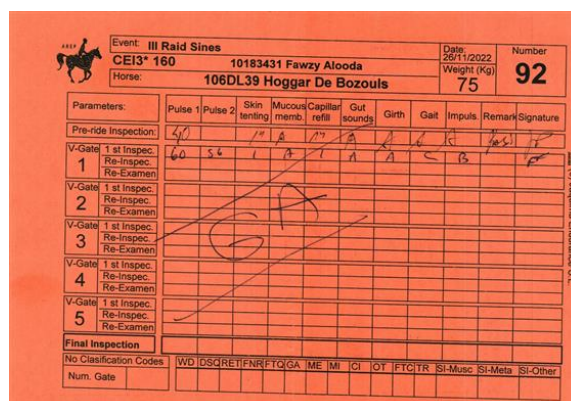 AREP
Event: III Raid Sines
Date: 26/11/2022
Number
CEI3* 160 10183431 Fawzy Alooda
Weight (Kg) 75
92
Horse: 106DL39 Hoggar De Bozouls
Parameters: Pulse 1 Pulse 2 Skin tenting Mucous memb. Capilar refill Gut sounds Girth Gait Impuls. Remark Signature
Pre-ride Inspection: 40 1" A 1" A A A A
V-Gate 1 1 st Inspec. 60 56 1 A 1 A A C B
Re-Inspec.
Re-Examen
V-Gate 2 1 st Inspec.
Re-Inspec.
Re-Examen
GA
V-Gate 3 1 st Inspec.
Re-Inspec.
Re-Examen
V-Gate 4 1 st Inspec.
Re-Inspec.
Re-Examen
V-Gate 5 1 st Inspec.
Re-Inspec.
Re-Examen
Final Inspection
No Clasification Codes WD DSQ RET FNR FTQ GA ME MI CI OT FTC TR SI-Musc SI-Meta SI-Other
Num. Gate